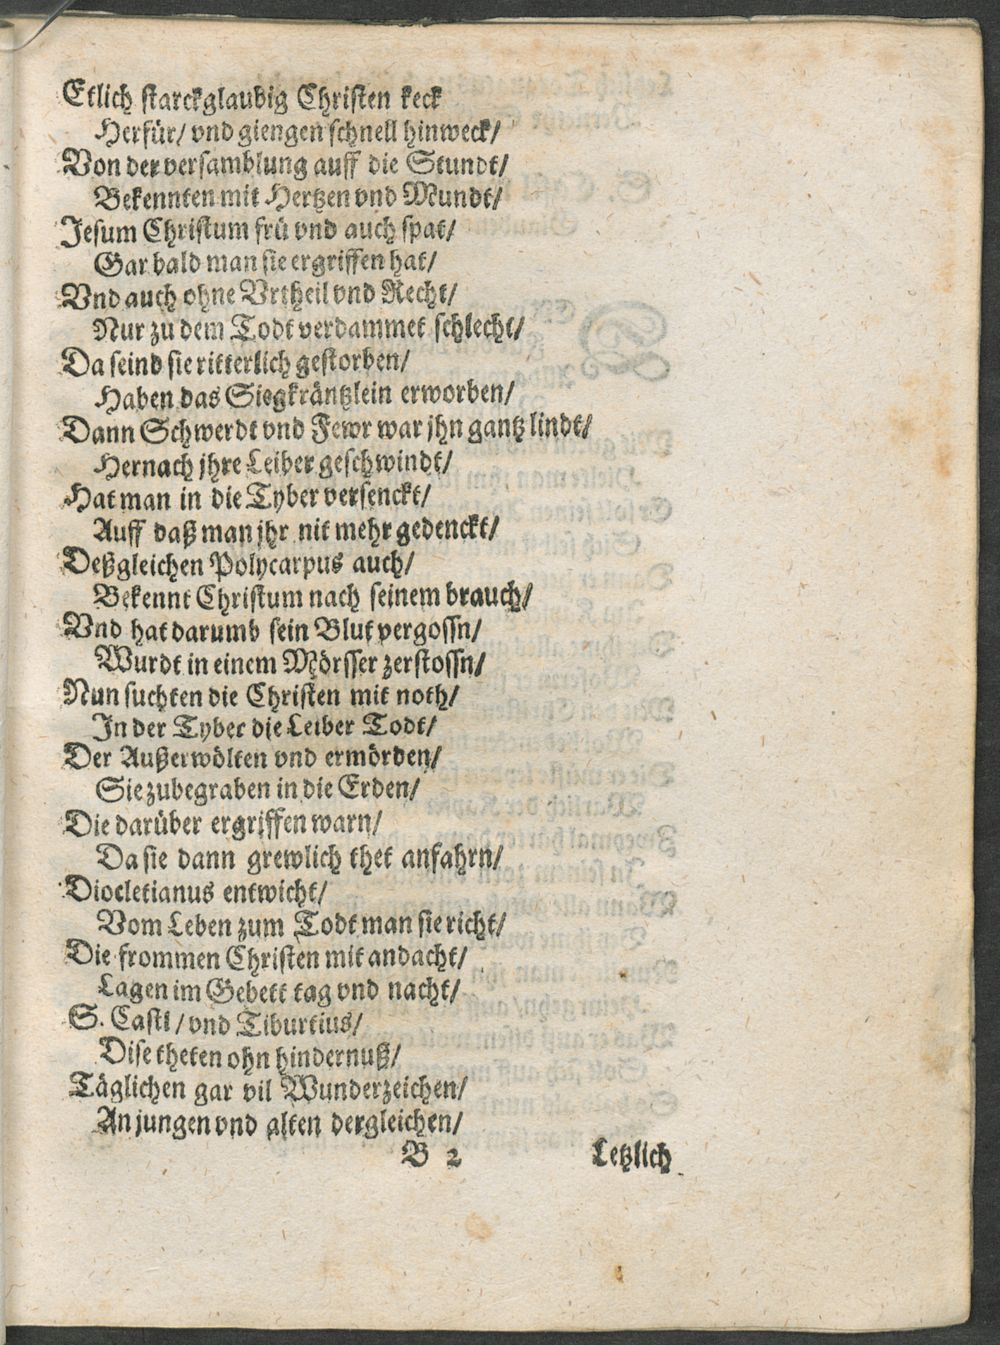 Etlich starckglaubig Christen keck
Herfür/ vnd giengen schnell hinweck/
Von der versamblung auff die Stundt/
Bekennten mit Hertzen vnd Mundt/
Jesum Christum frü vnd auch spat/
Gar bald man sie ergriffen hat/
Vnd auch ohne Vrtheil vnd Recht/
Nur zu dem Todt verdammet schlecht/
Da seind sie ritterlich gestorben/
Haben das Siegkräntzlein erworben/
Dann Schwerdt vnd Fewr war jhn gantz lindt/
Hernach jhre Leiber geschwindt/
Hat man in die Tyber versenckt/
Auff daß man jhr nit mehr gedenckt/
Deßgleichen Polycarpus auch/
Bekennt Christum nach seinem brauch/
Vnd hat darumb sein Blut vergossn/
Wurdt in einem Mörsser zerstossn/
Nun suchten die Christen mit noth/
In der Tyber die Leiber Todt/
Der Außerwölten vnd ermörden/
Sie zubegraben in die Erden/
Die darüber ergriffen warn/
Da sie dann grewlich thet anfahrn/
Diocletianus entwicht/
Vom Leben zum Todt man sie richt/
Die frommen Christen mit andacht/
Lagen im Gebett tag vnd nacht/
S. Castl/ vnd Tiburtius/
Dise theten ohn hindernuß/
Täglichen gar vil Wunderzeichen/
An jungen vnd alten dergleichen/
B 2 Letzlich